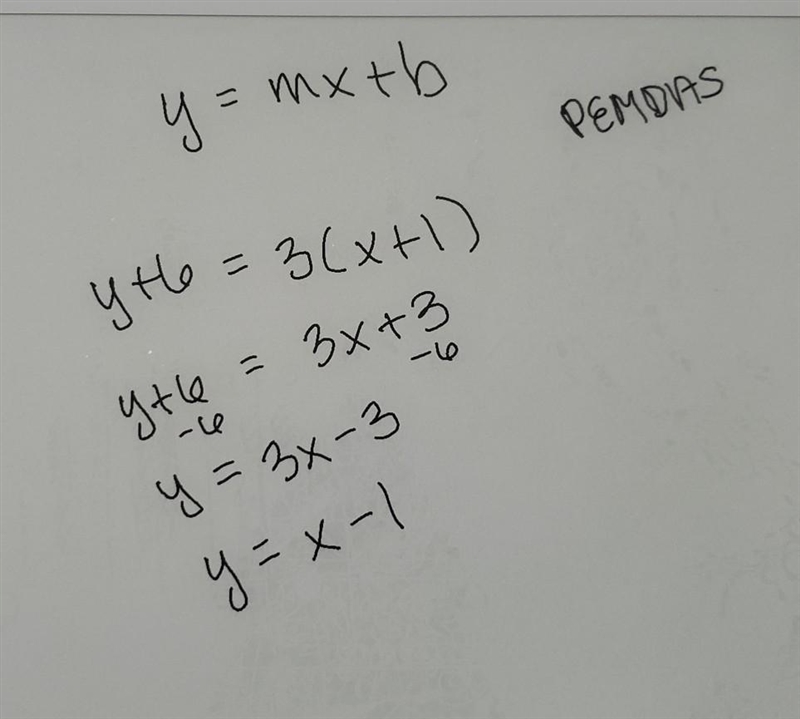 y = mx + b
PEMDAS
y+6 = 3(x+1)
y+6 = 3x+3
-6 -6
y = 3x - 3
y = x - 1